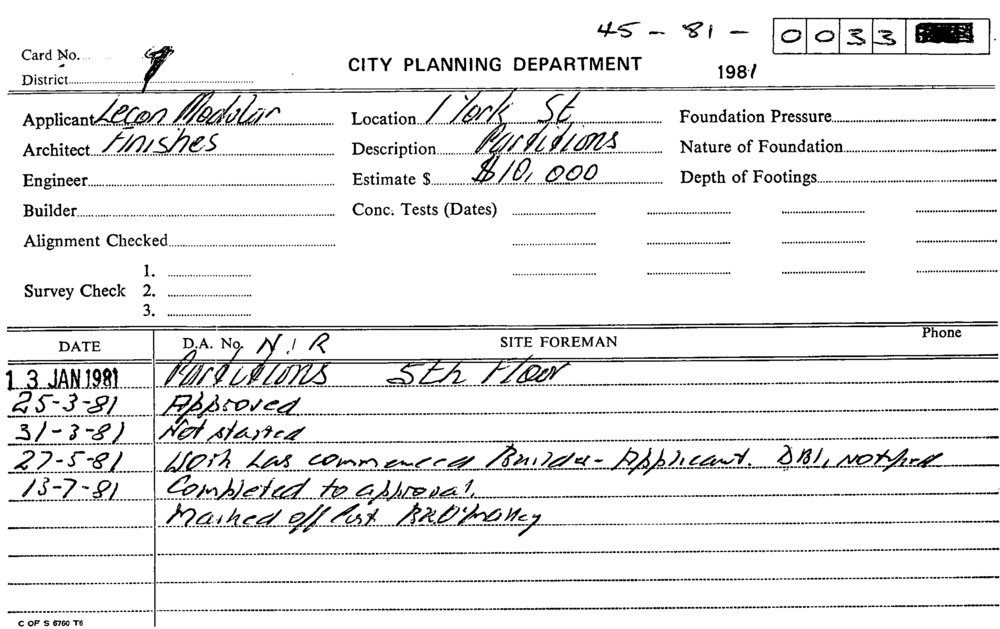 45 - 81 - 0033
Card No.
District 9
CITY PLANNING DEPARTMENT
1981
Applicant Lecon Modular
Location 1 York St
Foundation Pressure
Architect Finishes
Description Partitions
Nature of Foundation
Engineer
Estimate $ $10,000
Depth of Footings
Builder
Conc. Tests (Dates)
Alignment Checked
1.
Survey Check 2.
3.
DATE
D.A. No. N.I.R
SITE FOREMAN
Phone
13 JAN 1981 Partitions 5th Floor
25-3-81 Approved
31-3-81 Not started
27-5-81 Work has commenced Builder - Applicant. DBI, Notified
13-7-81 Completed to approval.
Marked off Cust
C OF S 6760 T6